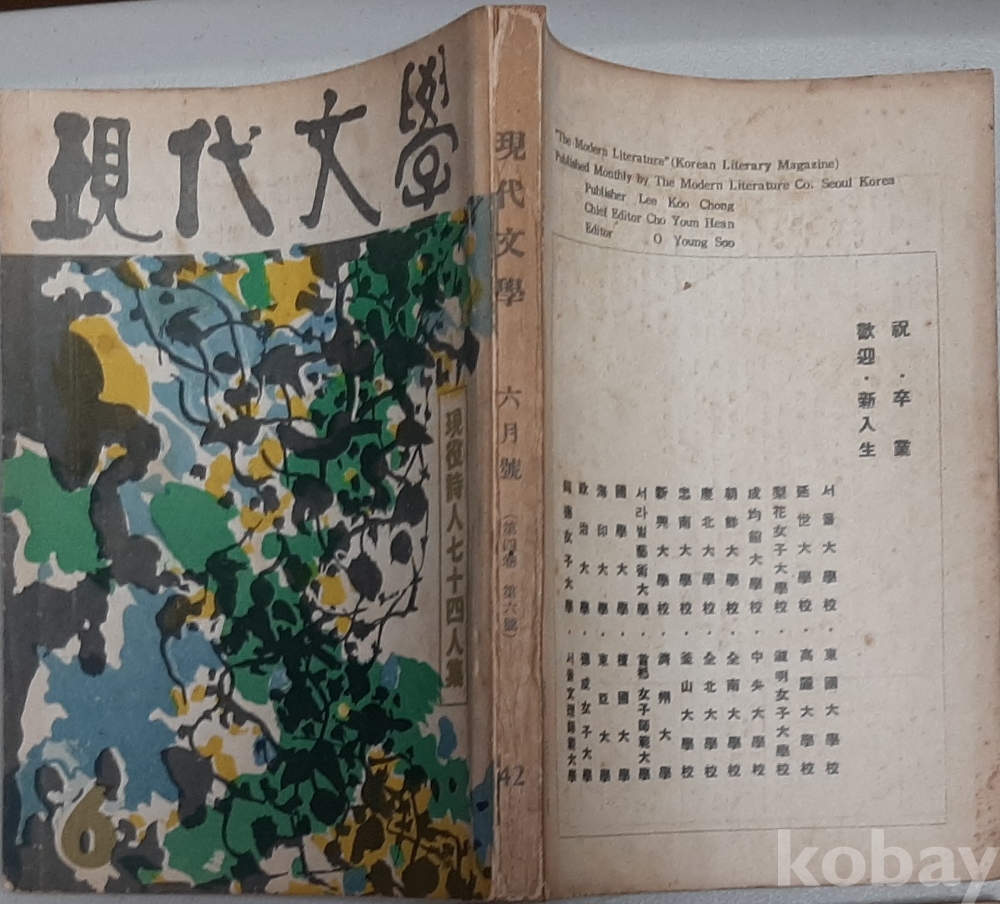 現代文學
現役詩人七十四人集
6
現代文學 六月號 (第四卷 第六號) 42
"The Modern Literature" (Korean Literary Magazine)
Published Monthly by The Modern Literature Co. Seoul Korea
Publisher Lee Koo Chong
Chief Editor Cho Youn Hean
Editor O Young Soo
祝·卒業
歡迎·新入生
서울大學校·東國大學校
延世大學校·高麗大學校
梨花女子大學校·淑明女子大學校
成均館大學校·中央大學校
朝鮮大學校·全南大學校
慶北大學校·全北大學校
忠南大學校·釜山大學校
新興大學校·濟州大學
서라벌藝術大學·首都女子師範大學
國學大學·檀國大學
海印大學·東亞大學
政治大學·德成女子大學
女子大學·서울文理師範大學
kobay